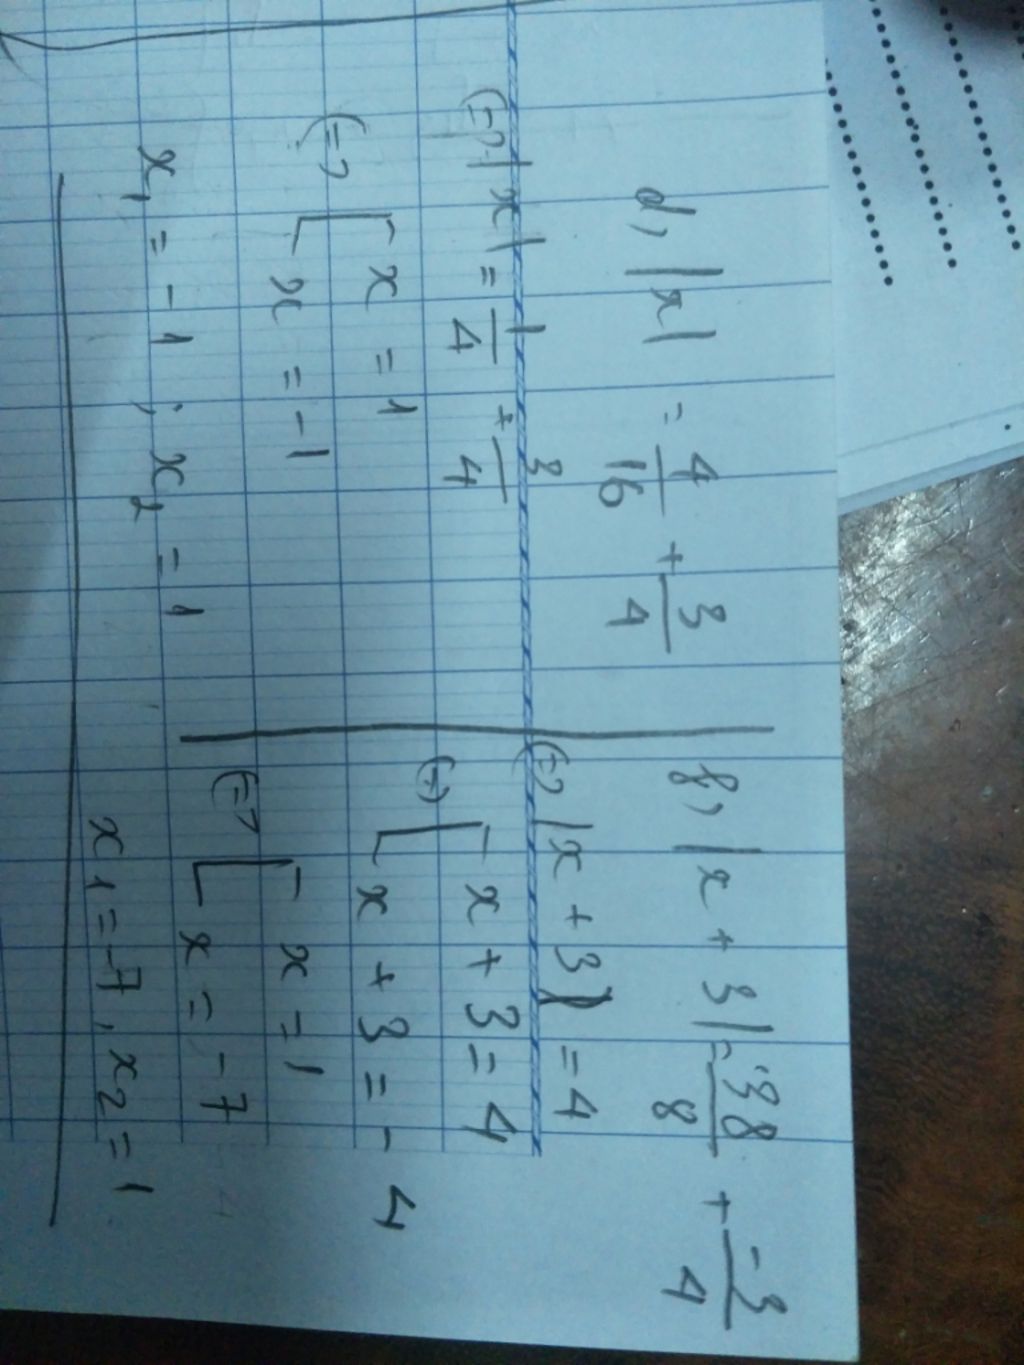 d, |x| = 4/16 + 3/4
(=) |x| = 1/4 + 3/4
(=) [ x = 1
x = -1
x₁ = -1 ; x₂ = 1
f, |x + 3| = 38/8 + -3/4
(=) |x + 3| = 4
(=) [ x + 3 = 4
x + 3 = -4
(=) [ x = 1
x = -7
x1 = -7, x2 = 1